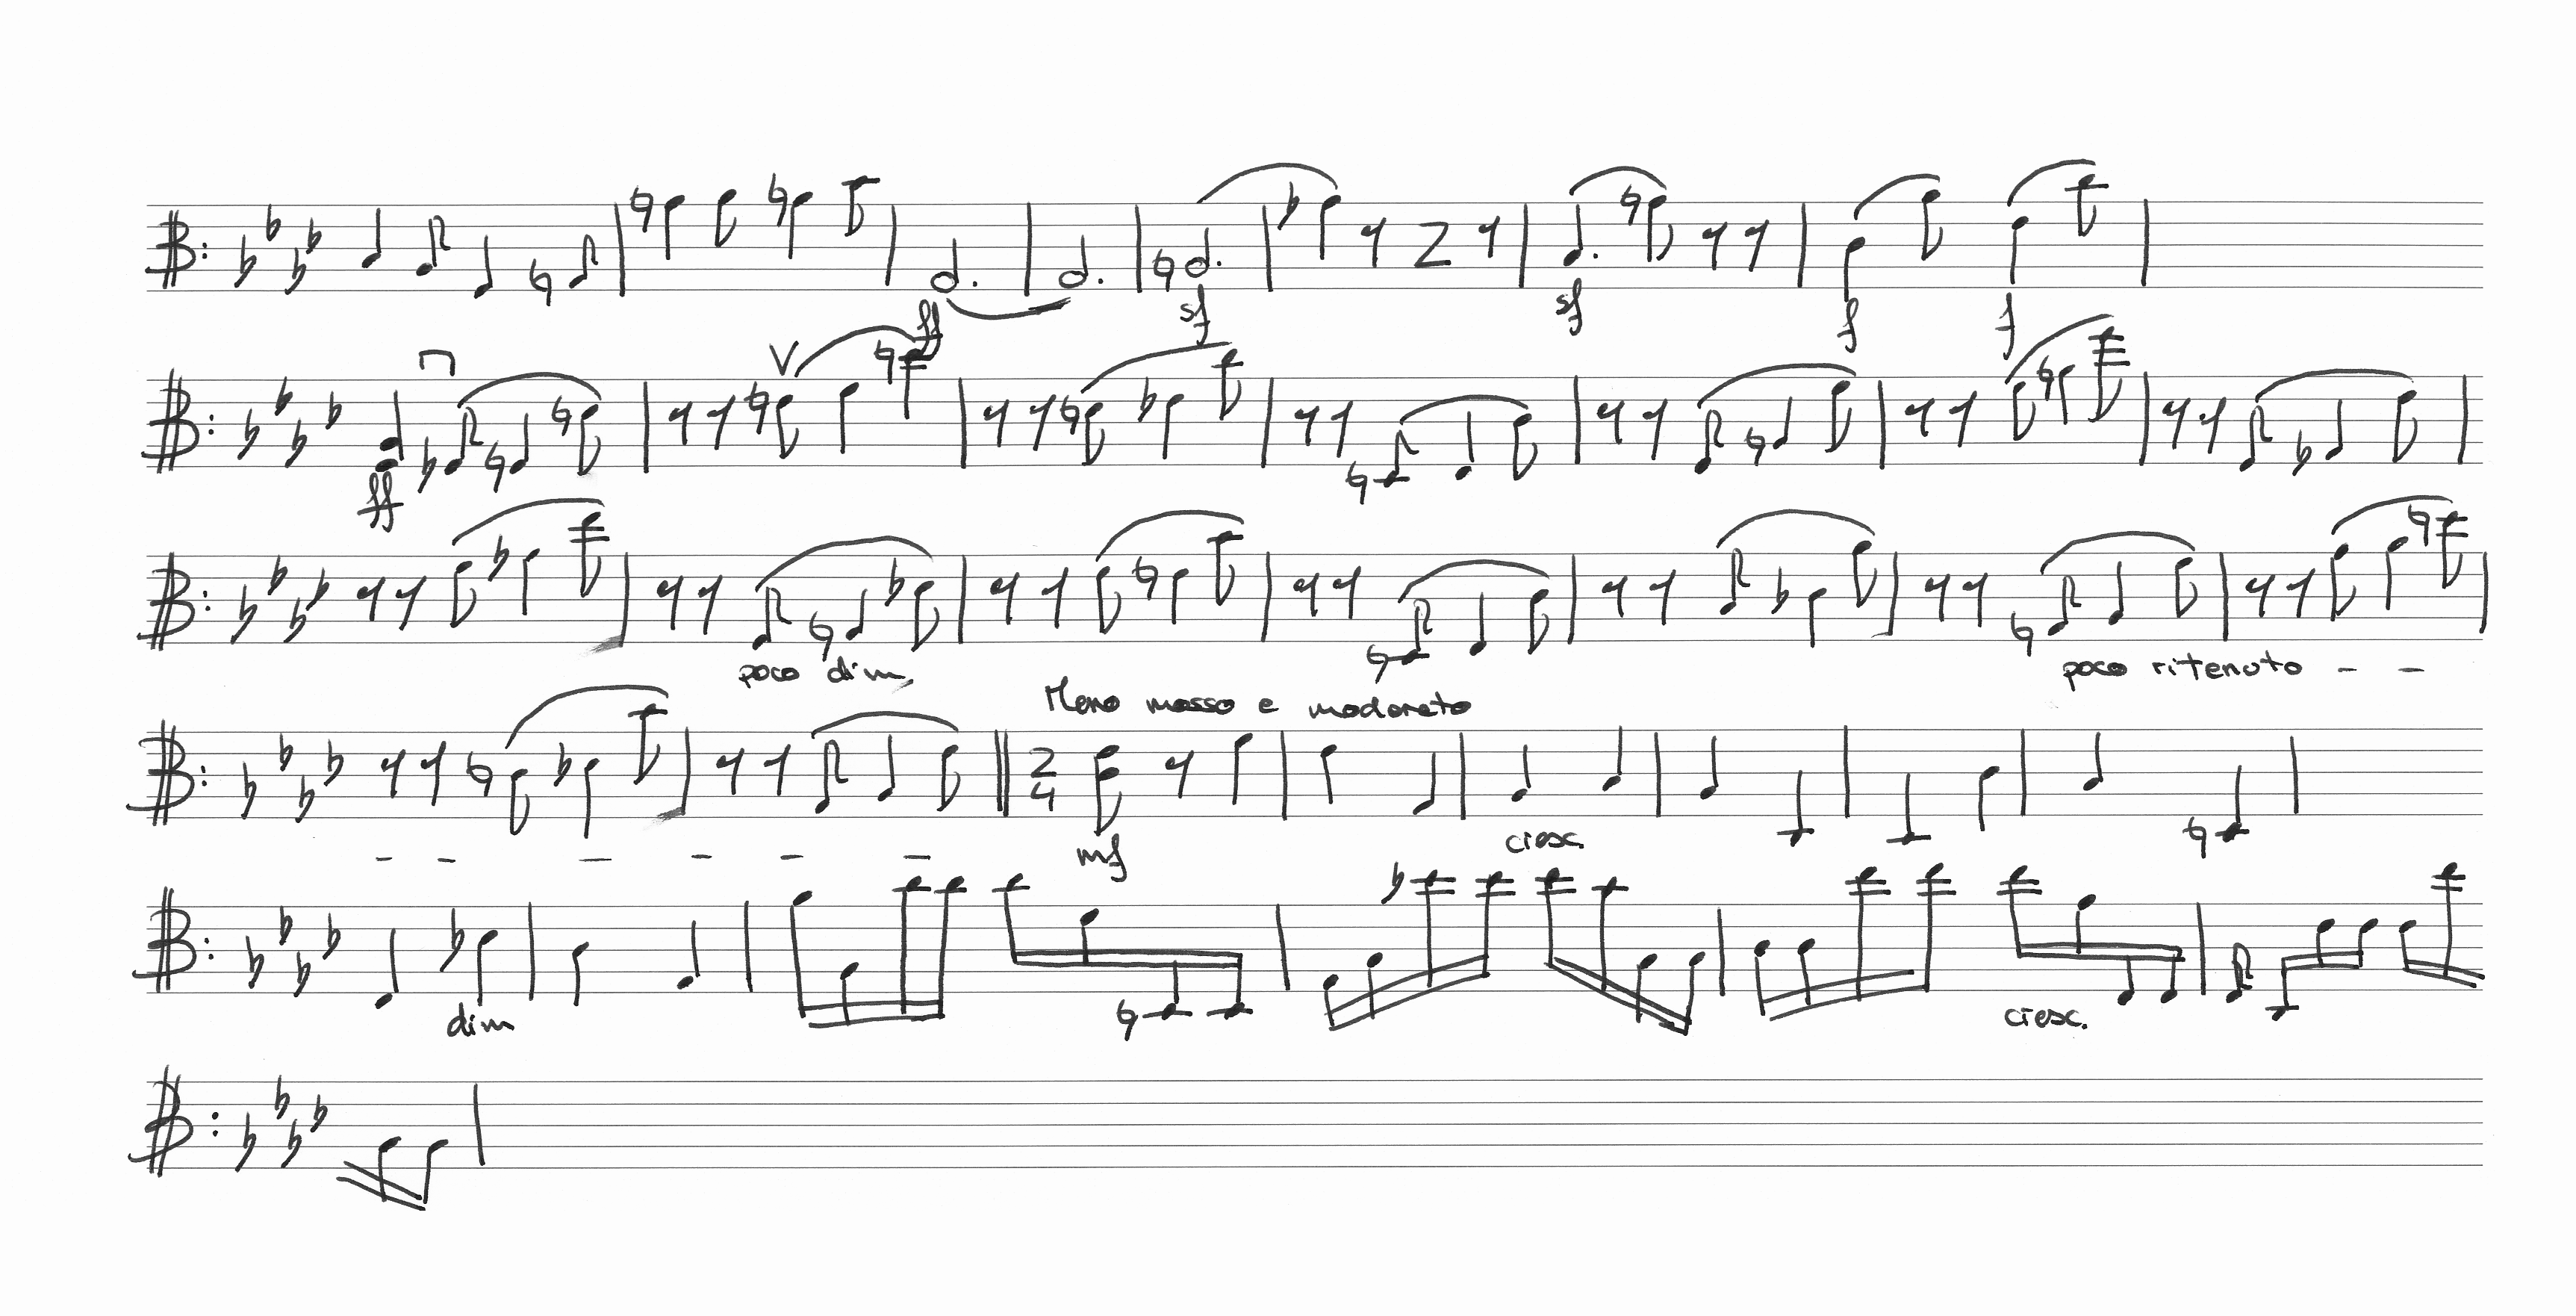 sf sf f f
ff
ff
poco dim poco ritenuto - -
Meno mosso e moderato
2
4
- - - - - -
mf cresc.
dim cresc.